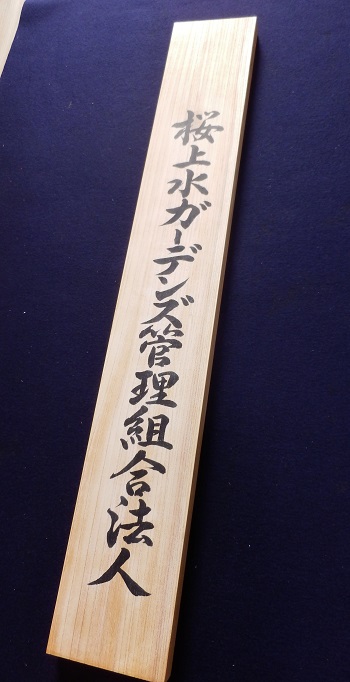 桜上水ガーデンズ管理組合法人